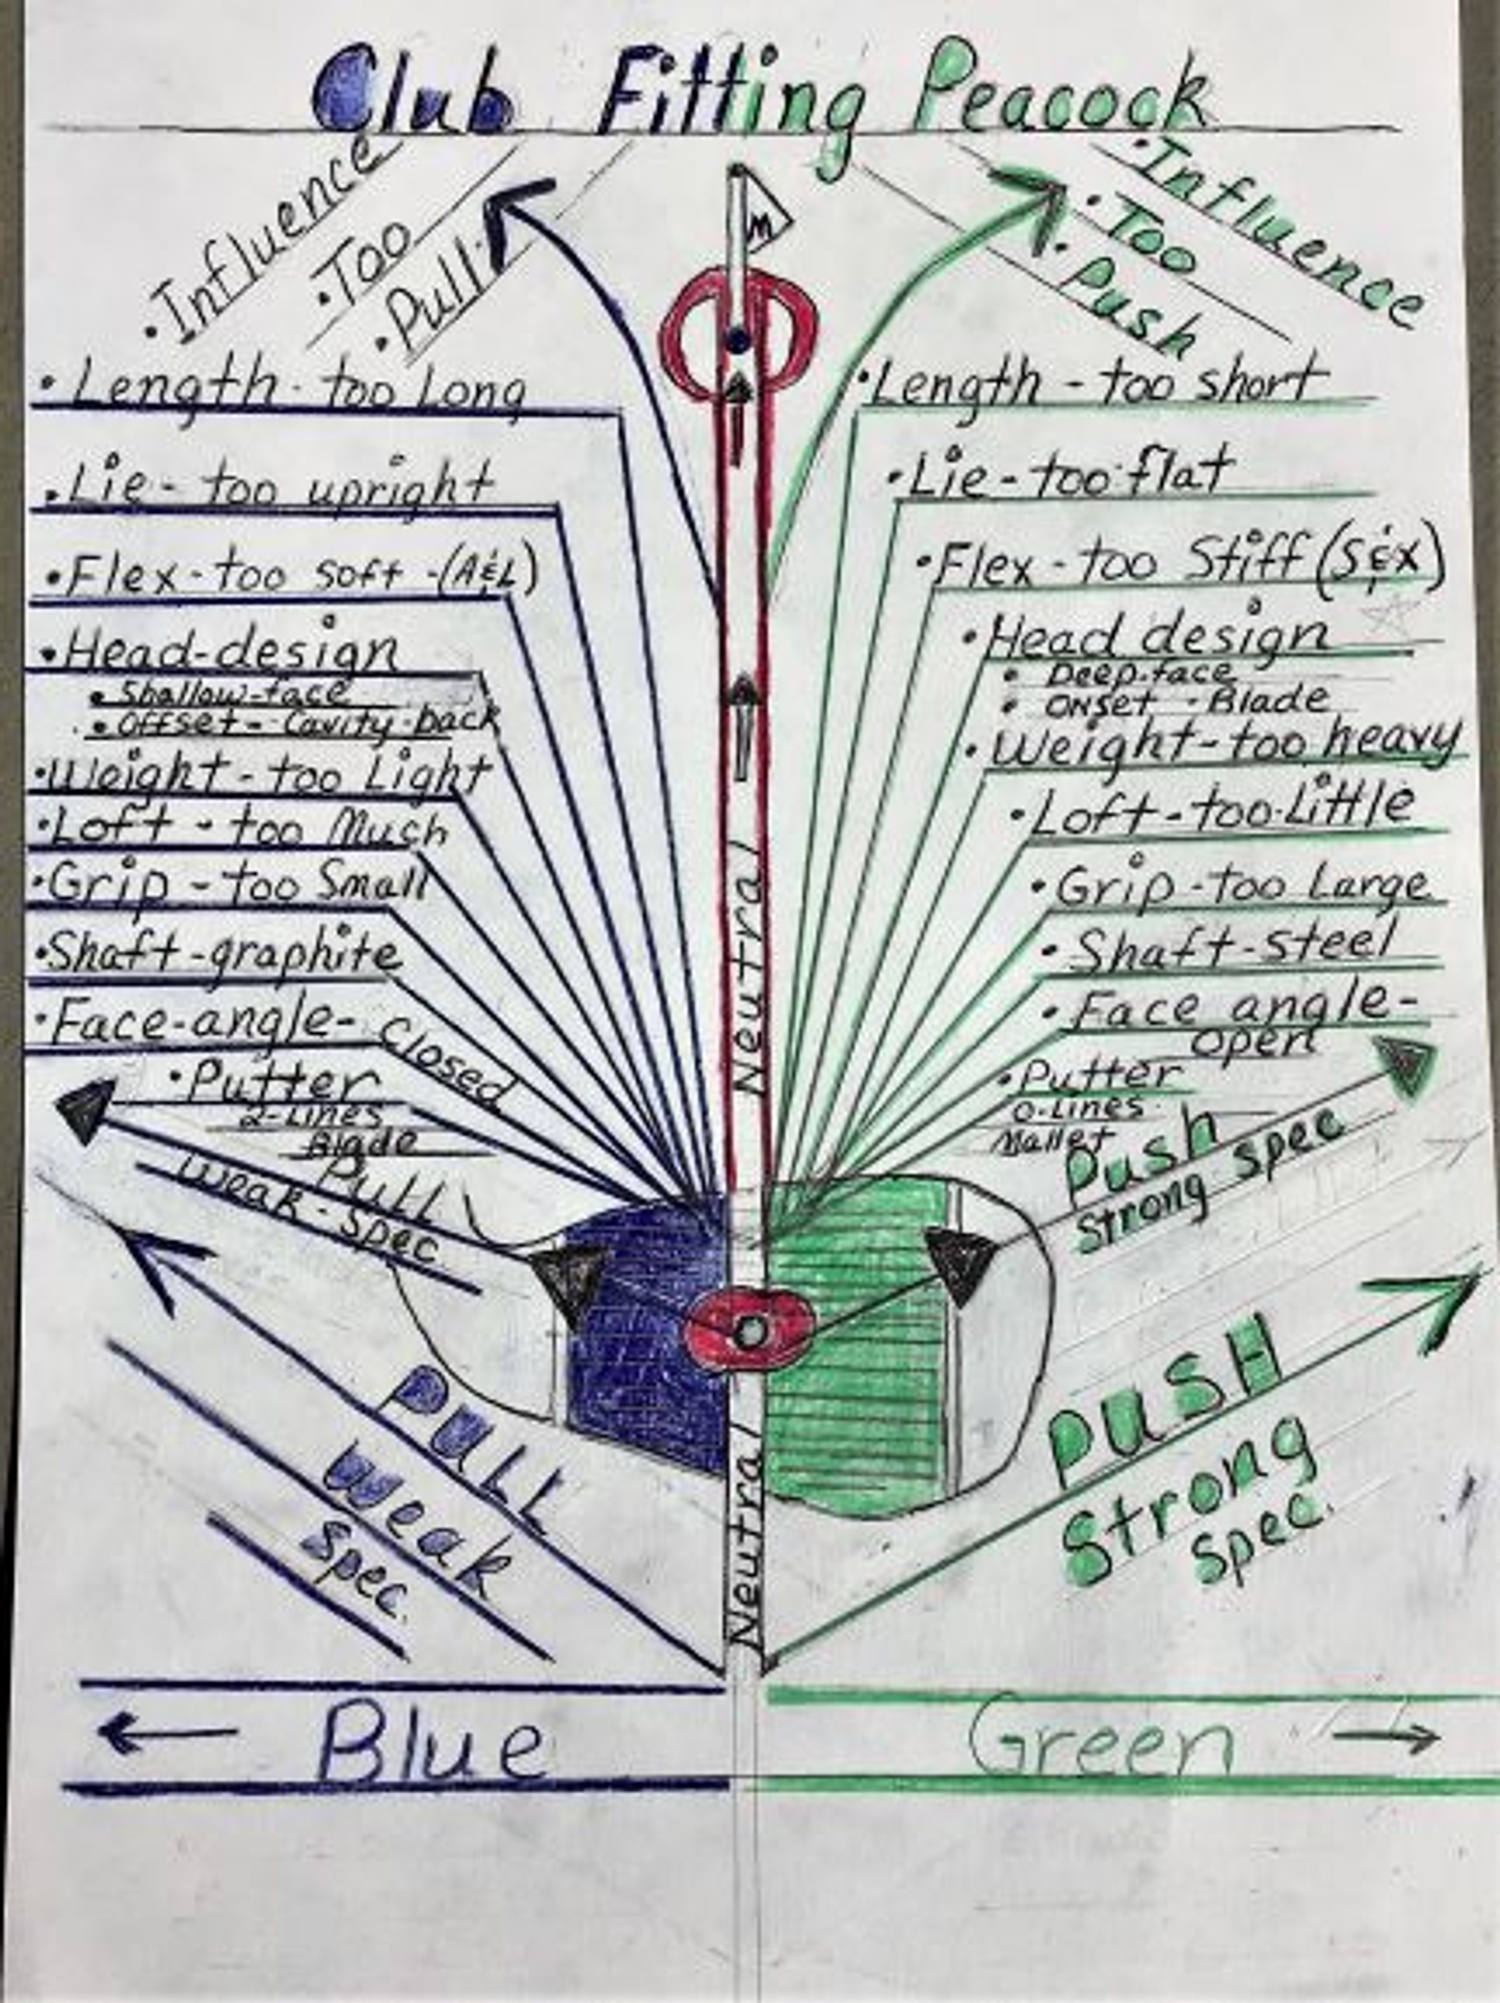 Club Fitting Peacock
• Influence
• Too
• Pull
M
• Influence
• Too
• Push
• Length - too Long
• Lie - too upright
• Flex - too soft - (A&L)
• Head-design
• Shallow-face
• Offset - Cavity-back
• Weight - too Light
• Loft - too Much
• Grip - too Small
• Shaft - graphite
• Face-angle - Closed
• Putter
2-Lines
Blade
Pull
Weak-Spec
• Length - too short
• Lie - too flat
• Flex - too Stiff (S&X)
• Head design
• Deep-face
• Onset - Blade
• Weight - too heavy
• Loft - too Little
• Grip - too Large
• Shaft - Steel
• Face angle -
Open
• Putter
0-Lines
Mallet
Push
Strong Spec
Neutral
Neutral
PULL
Weak
Spec.
PUSH
Strong
Spec.
← Blue
Green →